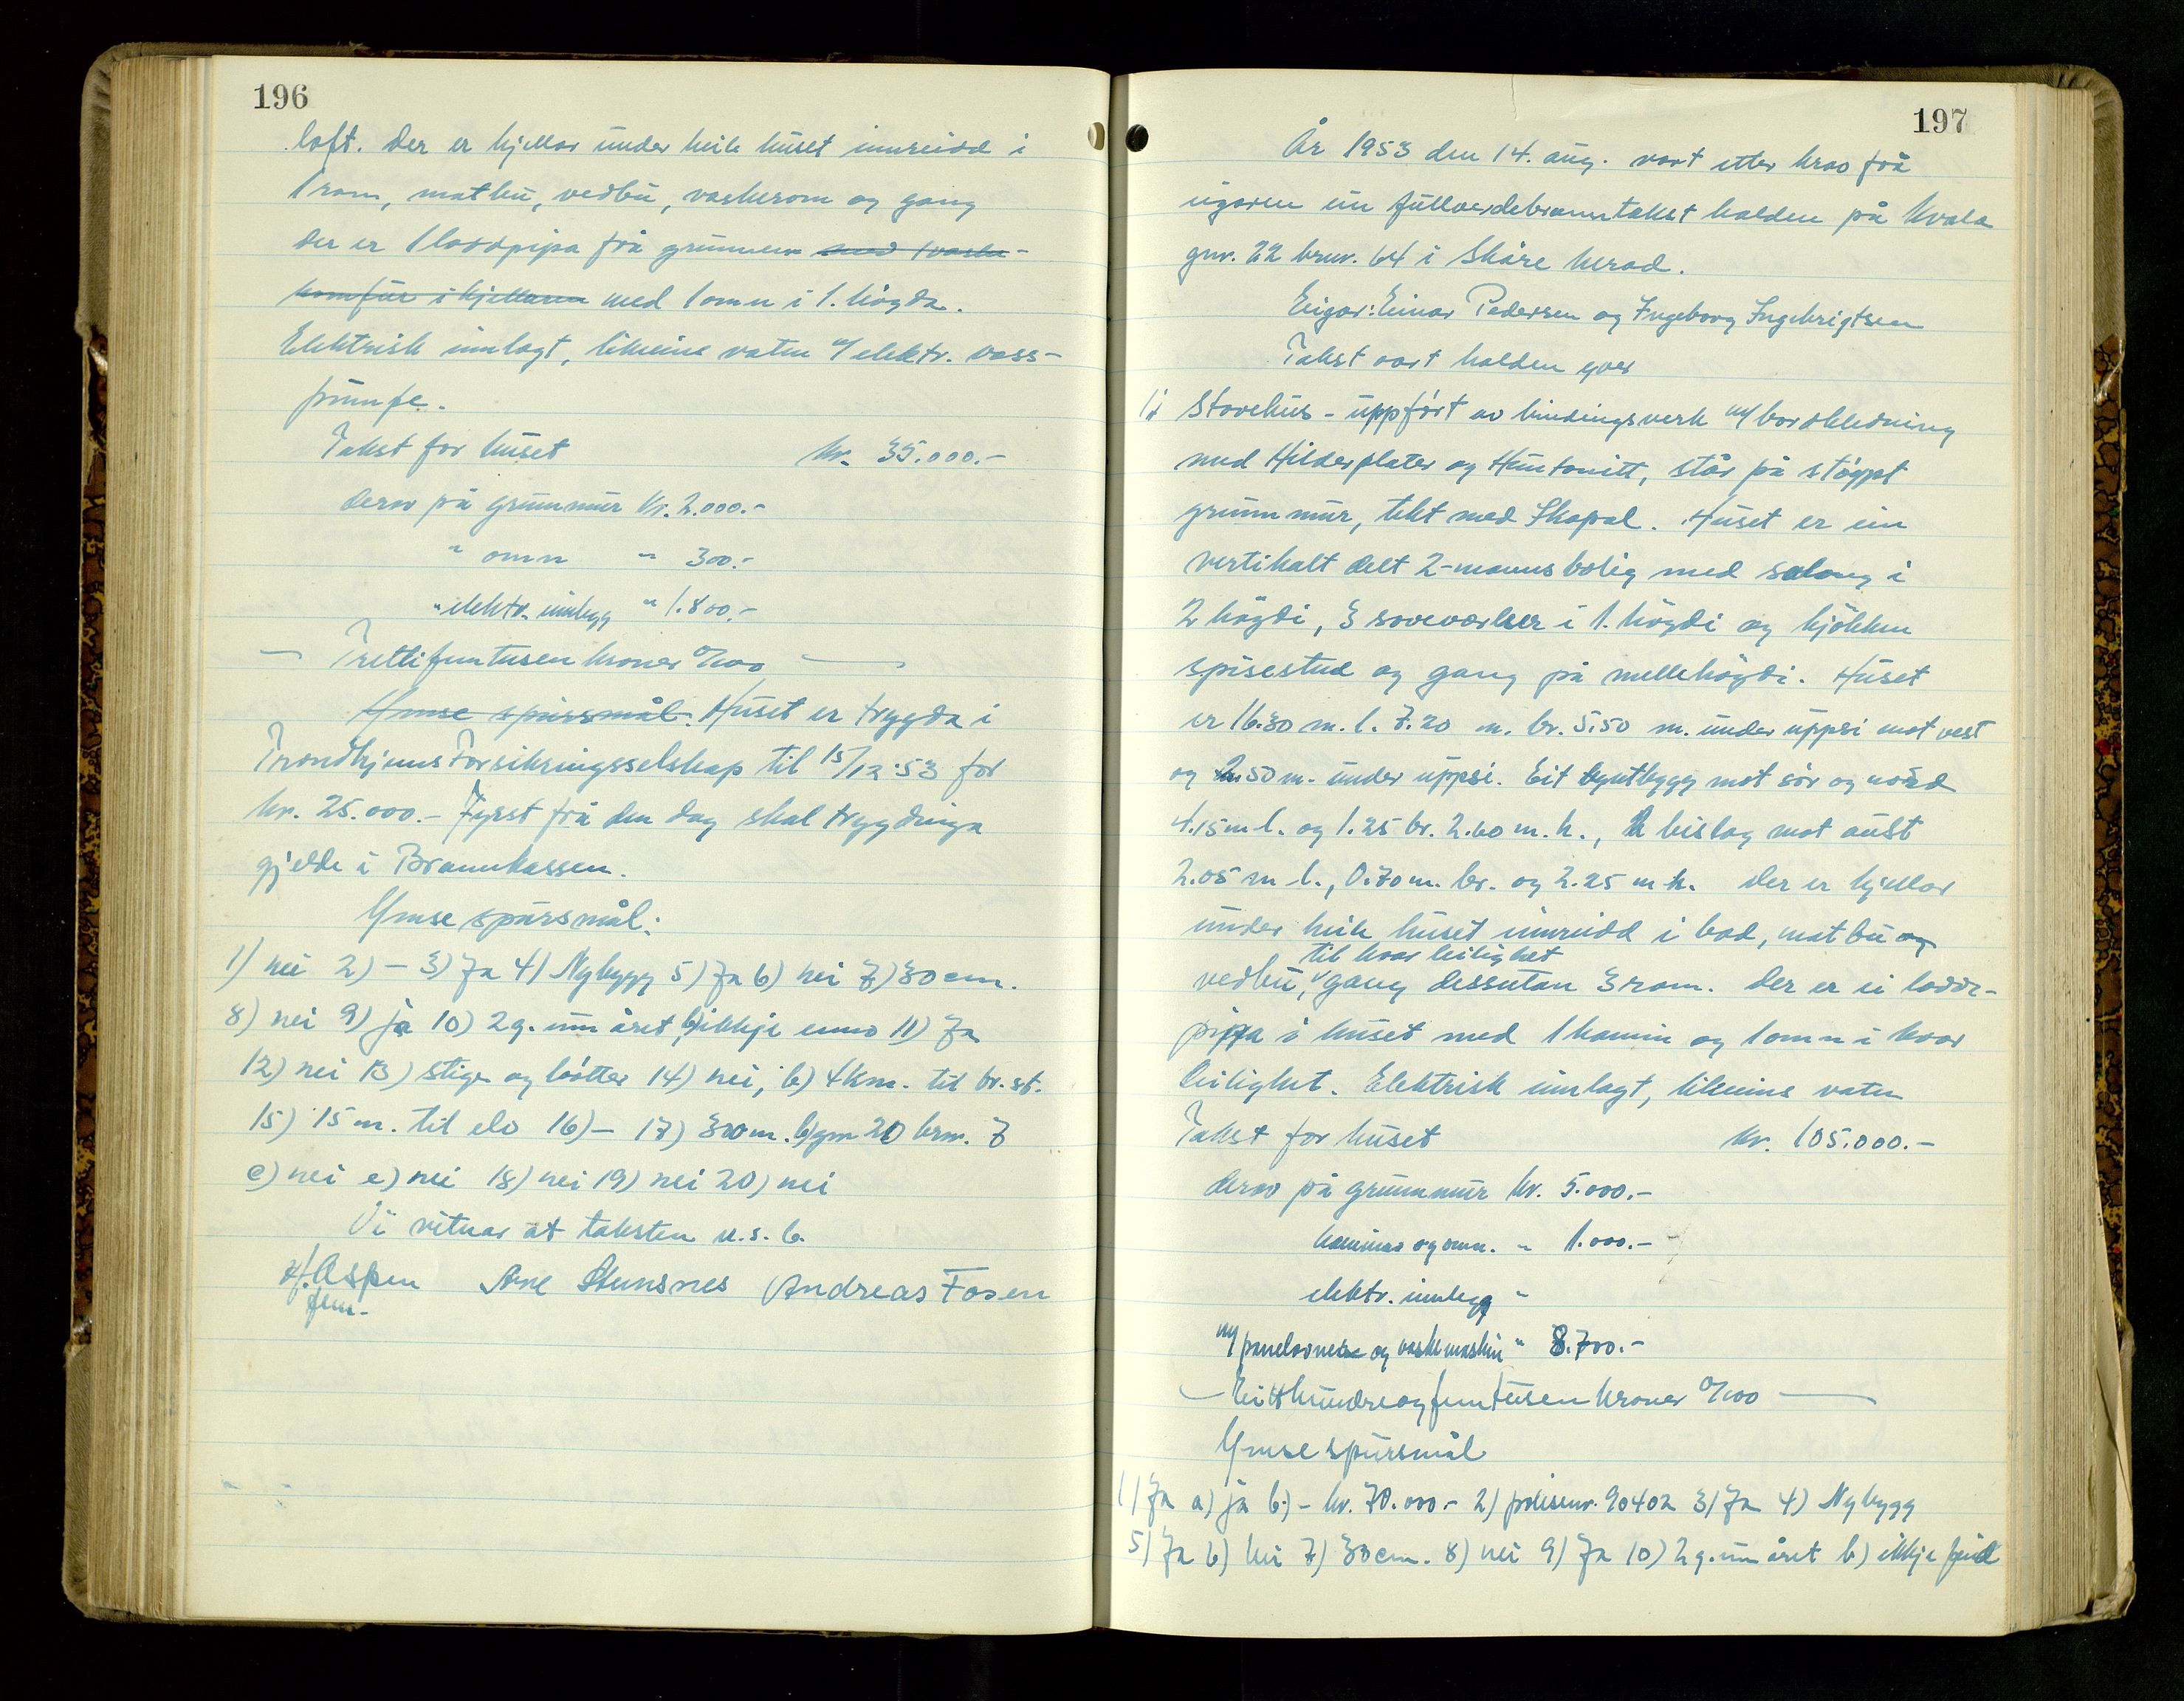 196
loft. Der er kjellar under heile huset innreidd i
1 rom, matbu, vedbu, vaskerom og gang
der er 1 loddpipa frå grunnen med 1 vaske-
komfur i kjellaren med 1 omn i 1. högda.
Elektrisk innlagt, likeeins vatn m/ elektr. vass-
pumpe.
Takst for huset kr. 35.000.-
derav på grunnmur kr. 2.000.-
" omn " 300.-
" elektr. innlegg " 1.800.-
— Trettifemtusen kroner 0/100 —
Ymse spursmål. Huset er trygda i
Trondhjems Forsikringsselskap til 15/12-53 for
kr. 25.000.- Fyrst frå den dag skal trygdinga
gjelde i Brannkassen.
Ymse spursmål:
1) nei 2) - 3) Ja 4) Nybygg 5) Ja 6) nei 7) 30 cm.
8) nei 9) ja 10) 2 g. um året, b) ikkje enno 11) Ja
12) nei 13) stige og bötter 14) nei, b) 4 km. til br. st.
15) 15 m. til elv 16) - 17) 300 m. b) gnr 20 brnr. 7
c) nei e) nei 18) nei 19) nei 20) nei
Vi vitnar at taksten u.s.b.
H. Aspen Arne Stensnes Andreas Fosen
fem-
197
År 1953 den 14. aug. vart etter krav frå
eigaren ein fullverdebranntakst halden på Kvala
gnr. 22 brnr. 64 i Skåre herad.
Eigar: Einar Pedersen og Ingeborg Ingebrigtsen
Takst vart halden yver
1) Stovehus - uppfört av bindingsverk m/ bordkledning
med Hilderplater og Huntonitt, står på stöypt
grunnmur, tekt med Skopal. Huset er ein
vertikalt delt 2-manns bolig med salong i
2 högdi, 3 soveværelser i 1. högdi og kjökken
spisestue og gang på mellehögdi. Huset
er 16.30 m. l. 7.20 m. br. 5.50 m. under uppsi mot vest
og 2.50 m. under uppsi. Eit utbygg mot sör og nord
4.15 m l. og 1.25 br. 2.60 m. h., 2 bislag mot aust
2.05 m l., 0.70 m. br. og 2.25 m h. Der er kjellar
under heile huset innreidd i bad, matbu og
til kvar leilighet
vedbu, gang dessutan 3 rom. Der er ei lodde-
pipa i huset med 1 kamin og 1 omn i kvar
leilighet. Elektrisk innlagt, likeeins vatn
Takst for huset kr. 105.000.-
derav på grunnmur kr. 5.000.-
kaminar og omn. " 1.000.-
elektr. innlegg "
m/ panelovner og vaskemaskin " 8.700.-
— Eitthundreogfemtusen kroner 0/100 —
Ymse spursmål
1) Ja a) ja b) - kr. 70.000.- 2) polisenr. 90402 3) Ja 4) Nybygg
5) Ja 6) nei 7) 30 cm. 8) nei 9) Ja 10) 2 g. um året b) ikkje